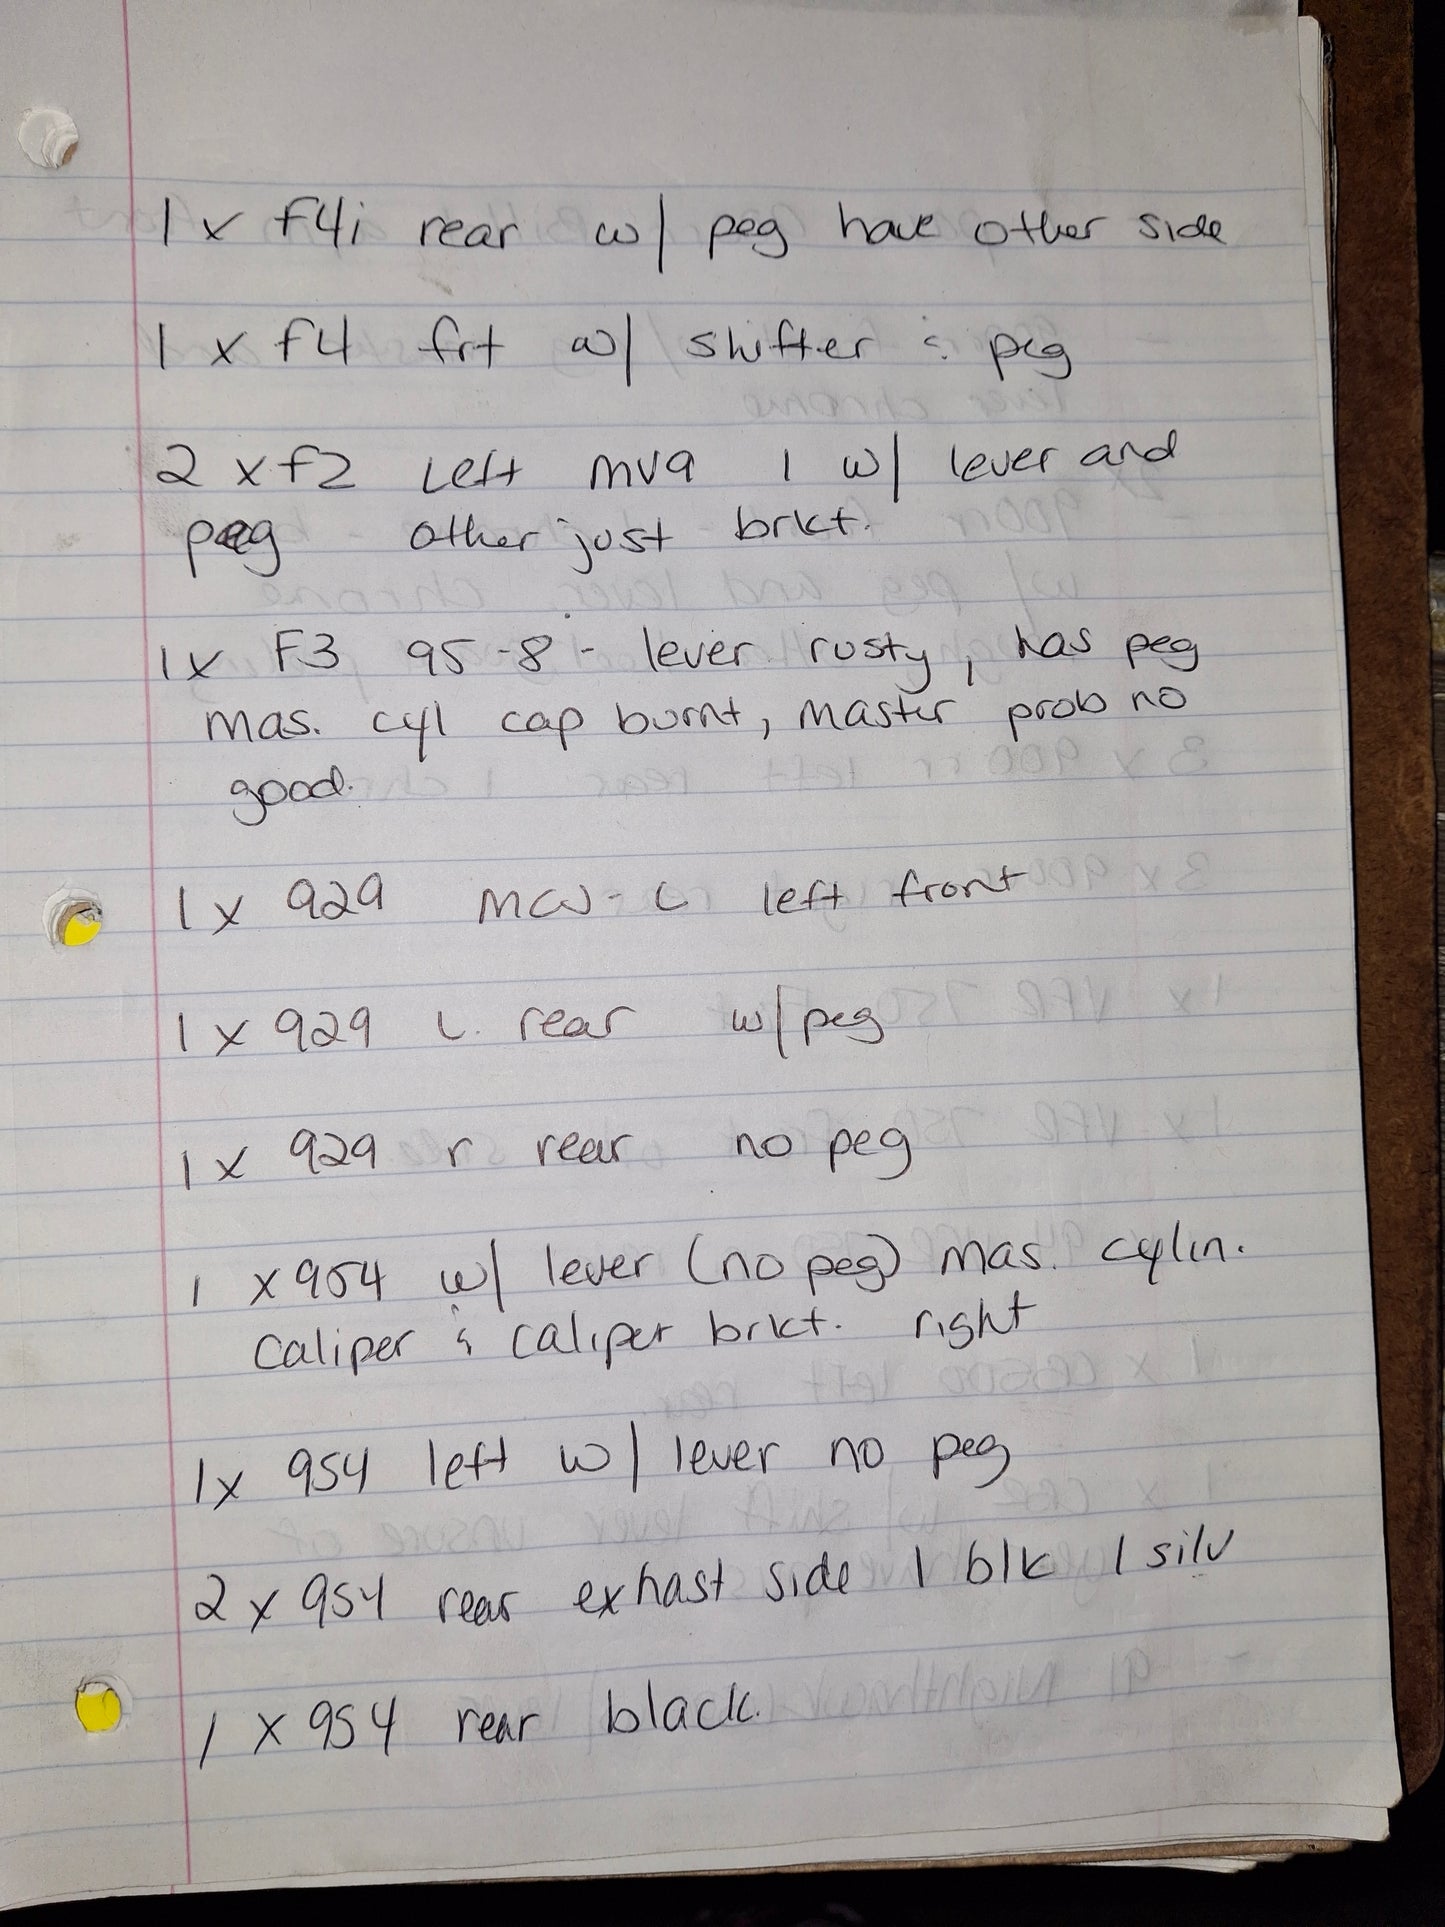 1 x f4i rear w/ peg have other side
1 x f4 frt w/ shifter & peg
2 x f2 Left mv9 1 w/ lever and
peg other just brkt.
1x F3 95-8 - lever rusty, has peg
mas. cyl cap burnt, master prob no
good.
1 x 929 MCJ - L left front
1 x 929 L. rear w/peg
1 x 929 r rear no peg
1 x 954 w/ lever (no peg) mas. cylin.
caliper & caliper brkt. right
1x 954 left w/ lever no peg
2 x 954 rear exhast side 1 blk 1 silv
1 x 954 rear black.